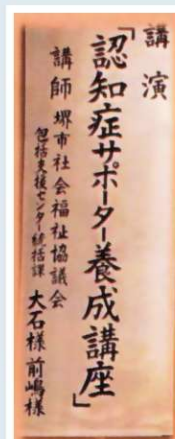 講演
「認知症サポーター養成講座」
講師 堺市社会福祉協議会
包括支援センター統括課
大石様 前嶋様